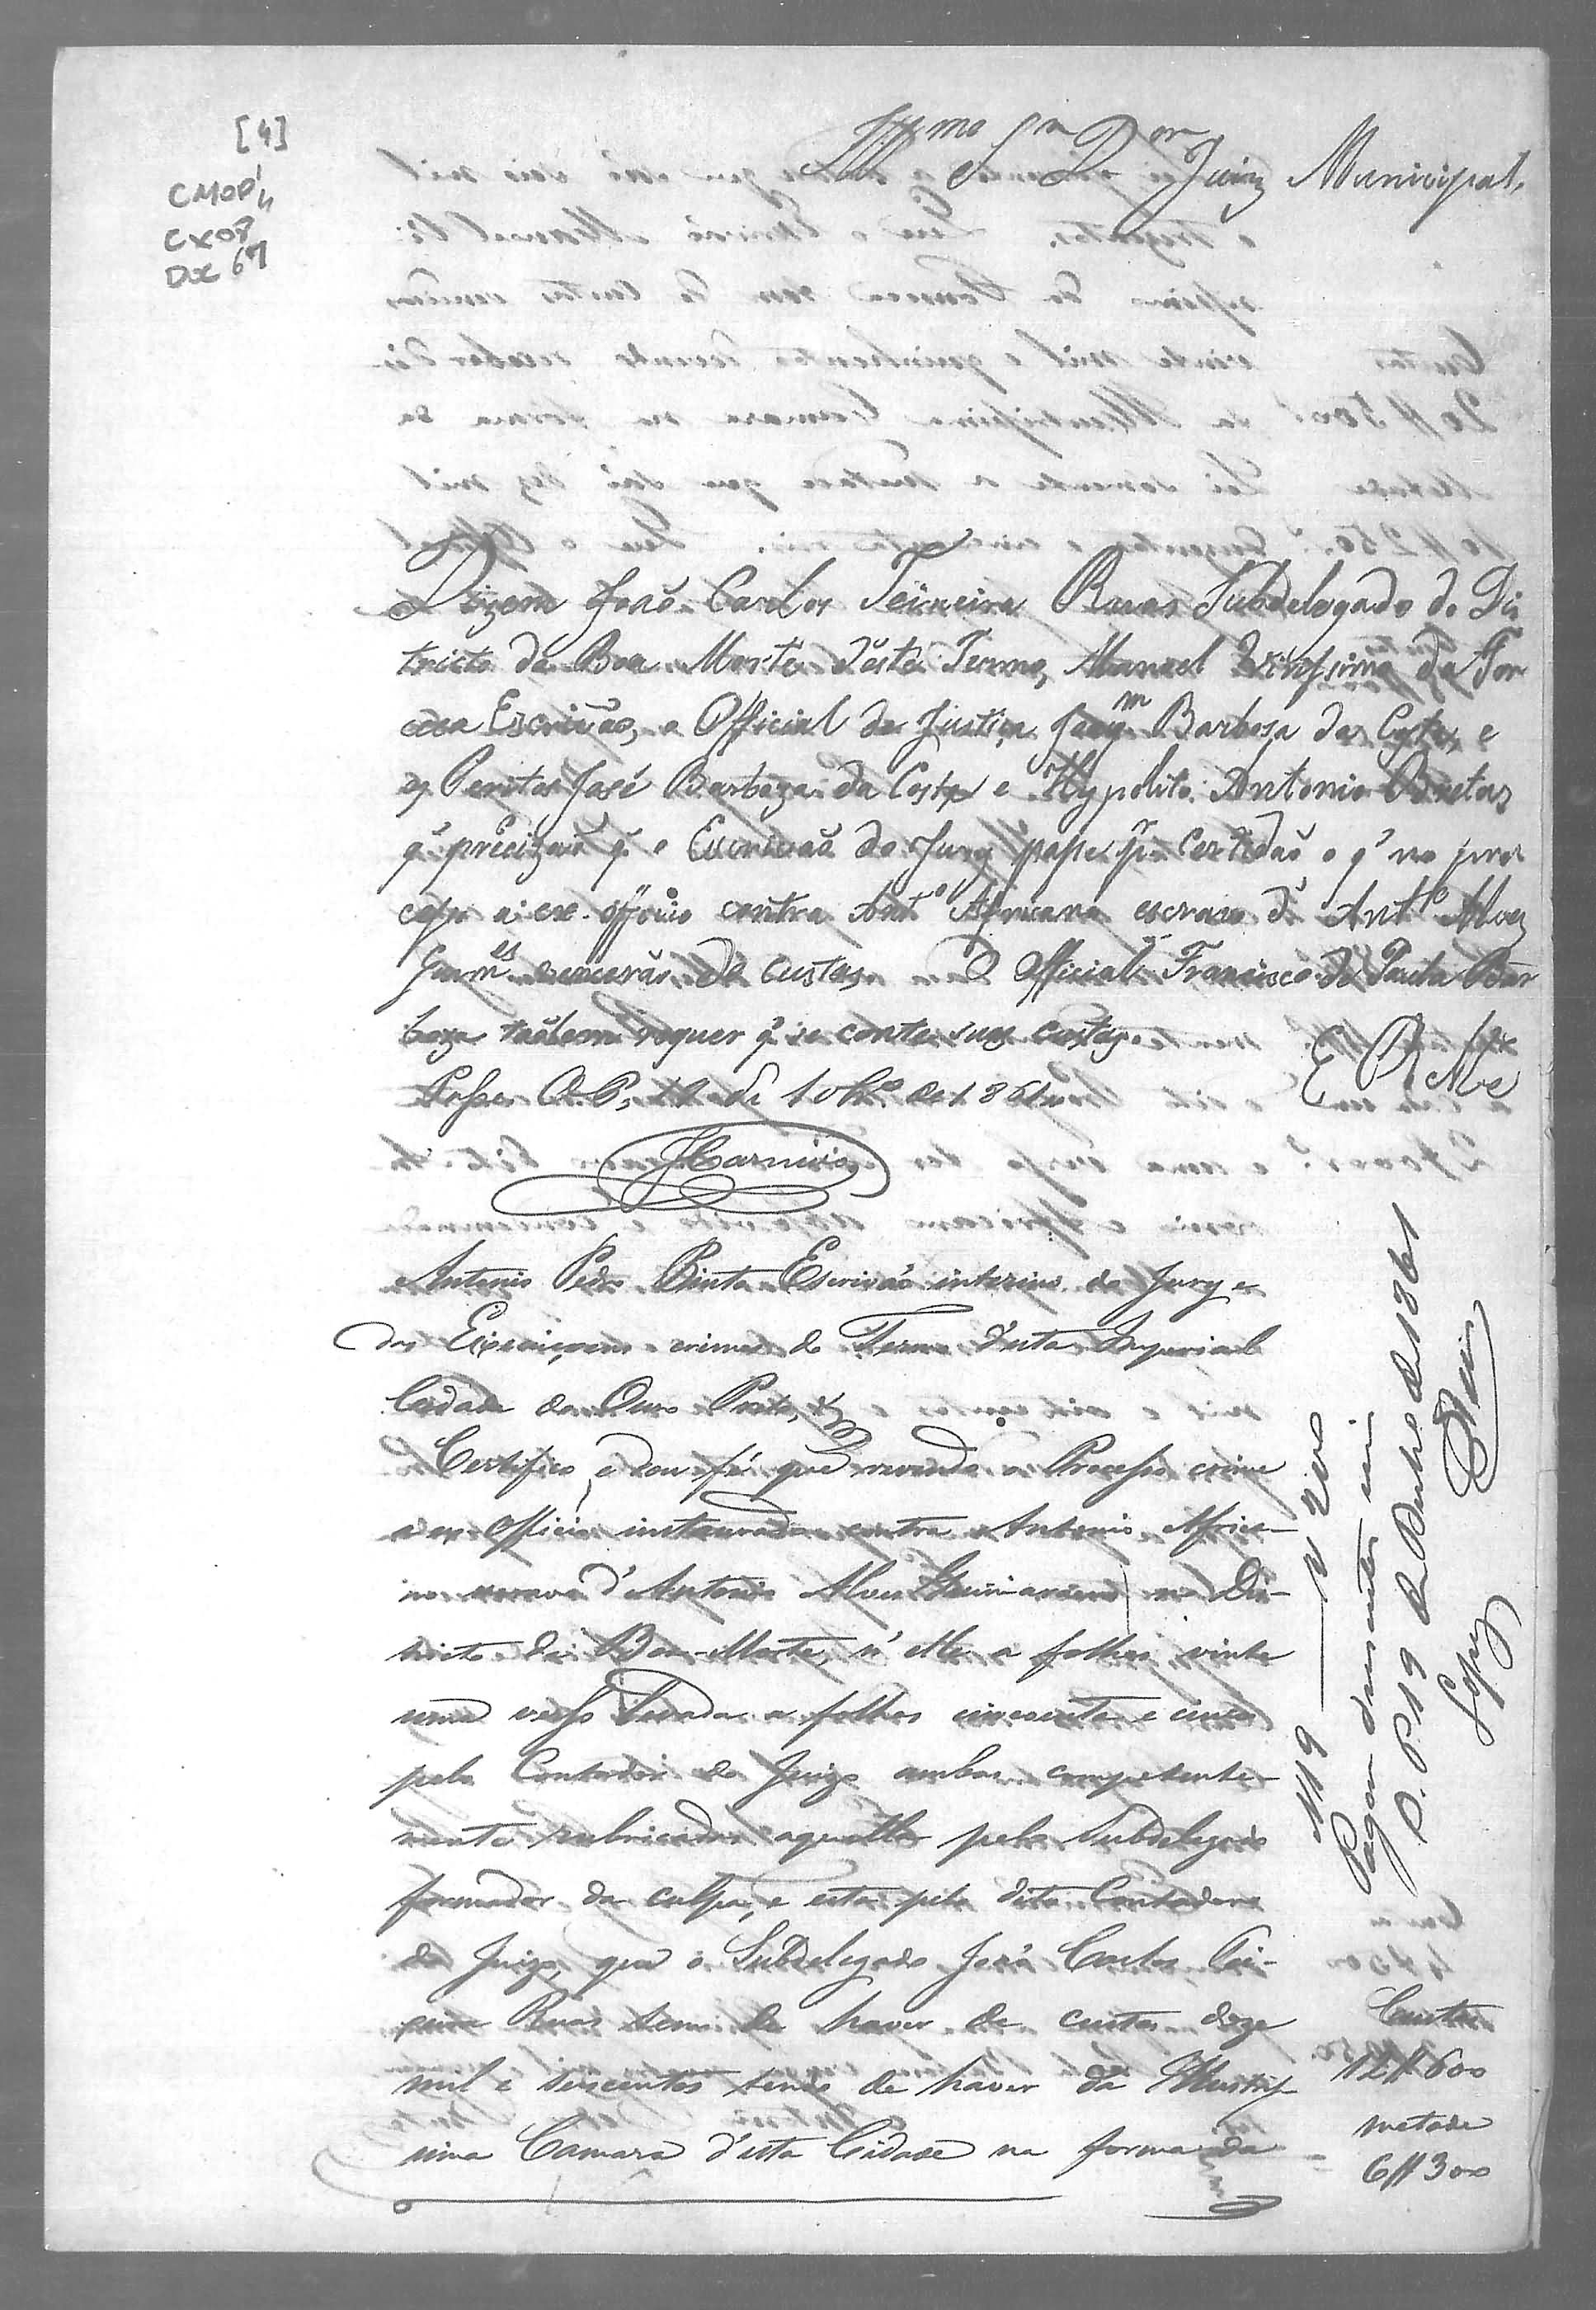 [4]
CMOP
CX08
Doc 67
Illmo Snr Dor Juiz Municipal,
Dizem João Carlos Teixeira Ruas Subdelegado do Dis
tricto da Boa Morte d'este Termo, Manoel Virissimo da Fon
ceca Escrivão, o Official de Justiça Joaqm Barbosa da Costa, e
os Peritos José Barboza da Costa e Hypolito Antonio
q' precizaõ q' o Escrivaõ do Jury passe por Certidaõ o q' no pro
cesso a: ex-officio contra Anto Africano escravo d' Anto Alves
Guimes vencerão de custas, O Official Francisco de Paula Bar
boza taõbem requer q' se conte suas custas
E R Mce
Passe O. P. de 10bro de 1861
Antonio Pedro Pinto Escrivão interino do Jury e
das Execuçoens crimes do Termo d'esta Imperial
Cidade do Ouro Preto, &
Certifico, e dou fé que revendo o Processo crime
a ex-Officio instaurado contra Antonio Africa-
no escravo d'Antonio Alves Guimaraens no Dis-
tricto da Boa-Morte, n'elle a folhas vinte
uma verso a folhas cincoenta e cinco
pelo Contador do Juizo ambas competente-
mente rubricadas aquella pelo Subdelegado
formador da culpa, e esta pelo dito Contador
do Juizo, que o Subdelegado João Carlos Tei-
xeira Ruas tem de haver de custas doze
mil e seiscentos tendo de haver da Illustris-
sima Camara d'esta Cidade na forma da
Custas
12#600
metade
6#300
N 19 200
Pagou duzentos reis
O. P. 19 de Dezbro de 1861
Lopes